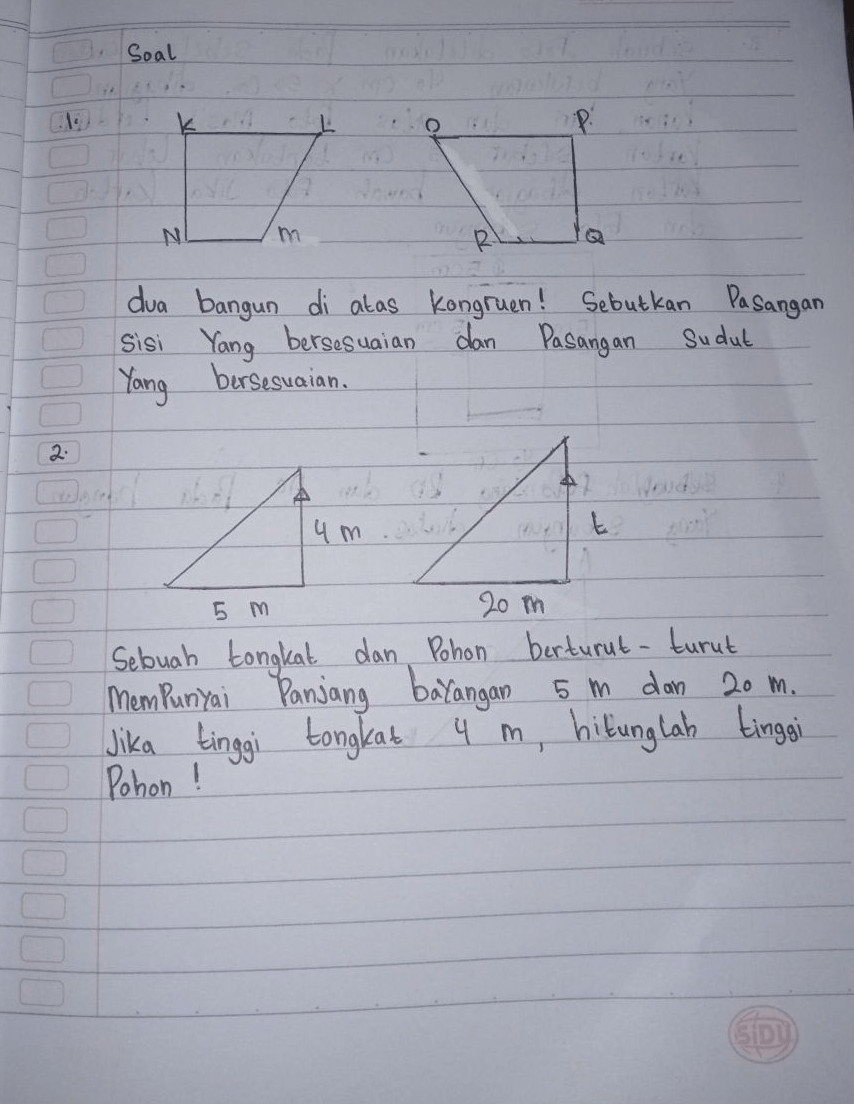 Soal
1.
K L O P
N M R Q
dua bangun di atas kongruen! Sebutkan Pasangan
sisi Yang bersesuaian dan Pasangan Sudut
Yang bersesuaian.
2.
4 m t
5 m 20 m
Sebuah tongkat dan Pohon berturut-turut
MemPunyai Panjang baYangan 5 m dan 20 m.
Jika tinggi tongkat 4 m, hitunglah tinggi
Pohon!
SiDU